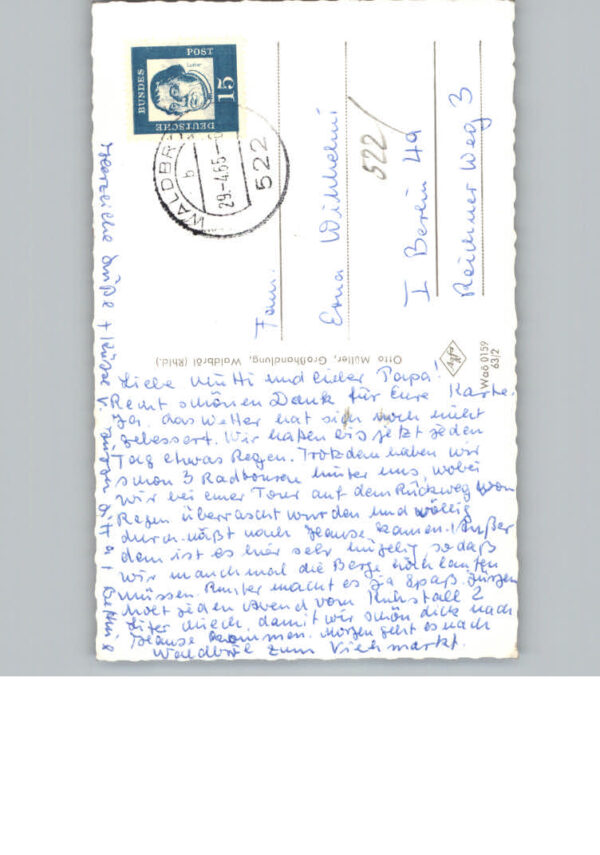 Liebe Mutti und lieber Papa!
Recht schönen Dank für Eure Karte.
Ja, das Wetter hat sich noch nicht
gebessert. Wir hatten bis jetzt jeden
Tag etwas Regen. Trotzdem haben wir
schon 3 Radtouren hinter uns, wobei
wir bei einer Tour auf dem Rückweg vom
Regen überrascht wurden und völlig
durchnäßt nach Hause kamen. Außer
dem ist es hier sehr hügelig, so daß
wir manchmal die Berge hoch laufen
müssen. Runter macht es ja Spaß. Jürgen
holt jeden Abend vom Kuhstall 2
Liter Milch, damit wir schön dick nach
Hause kommen. Morgen geht es nach
Waldbröl zum Viehmarkt.
Herzliche Grüße + Küsse v. Jürgen
Otto Müller, Großhandlung, Waldbröl (Rhld.)
Agfa
Wa6 0159
63/2
DEUTSCHE BUNDESPOST
15
Luther
WALDBR
b
29.-4.65
522
Fam.
Erna Wilhelmi
522
1 Berlin 49
Reichner Weg 3